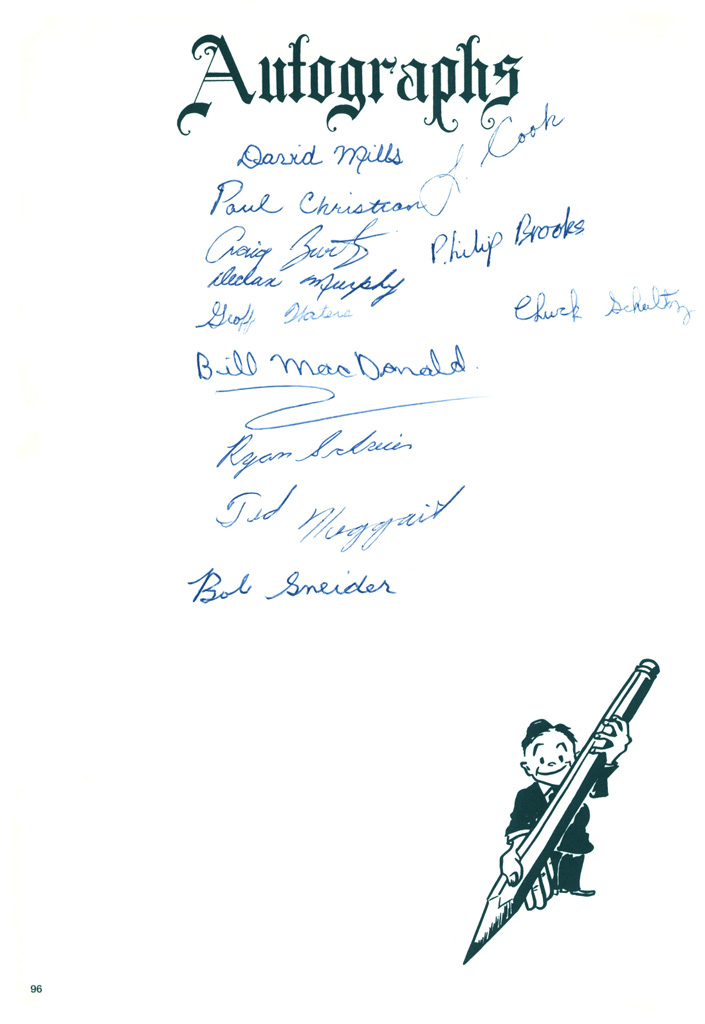 Autographs
David Mills
J. Cook
Paul Christian
Craig
Philip Brooks
Declan Murphy
Geoff Waters
Chuck Schultz
Bill MacDonald.
Ryan
Ted
Bob Sneider
96